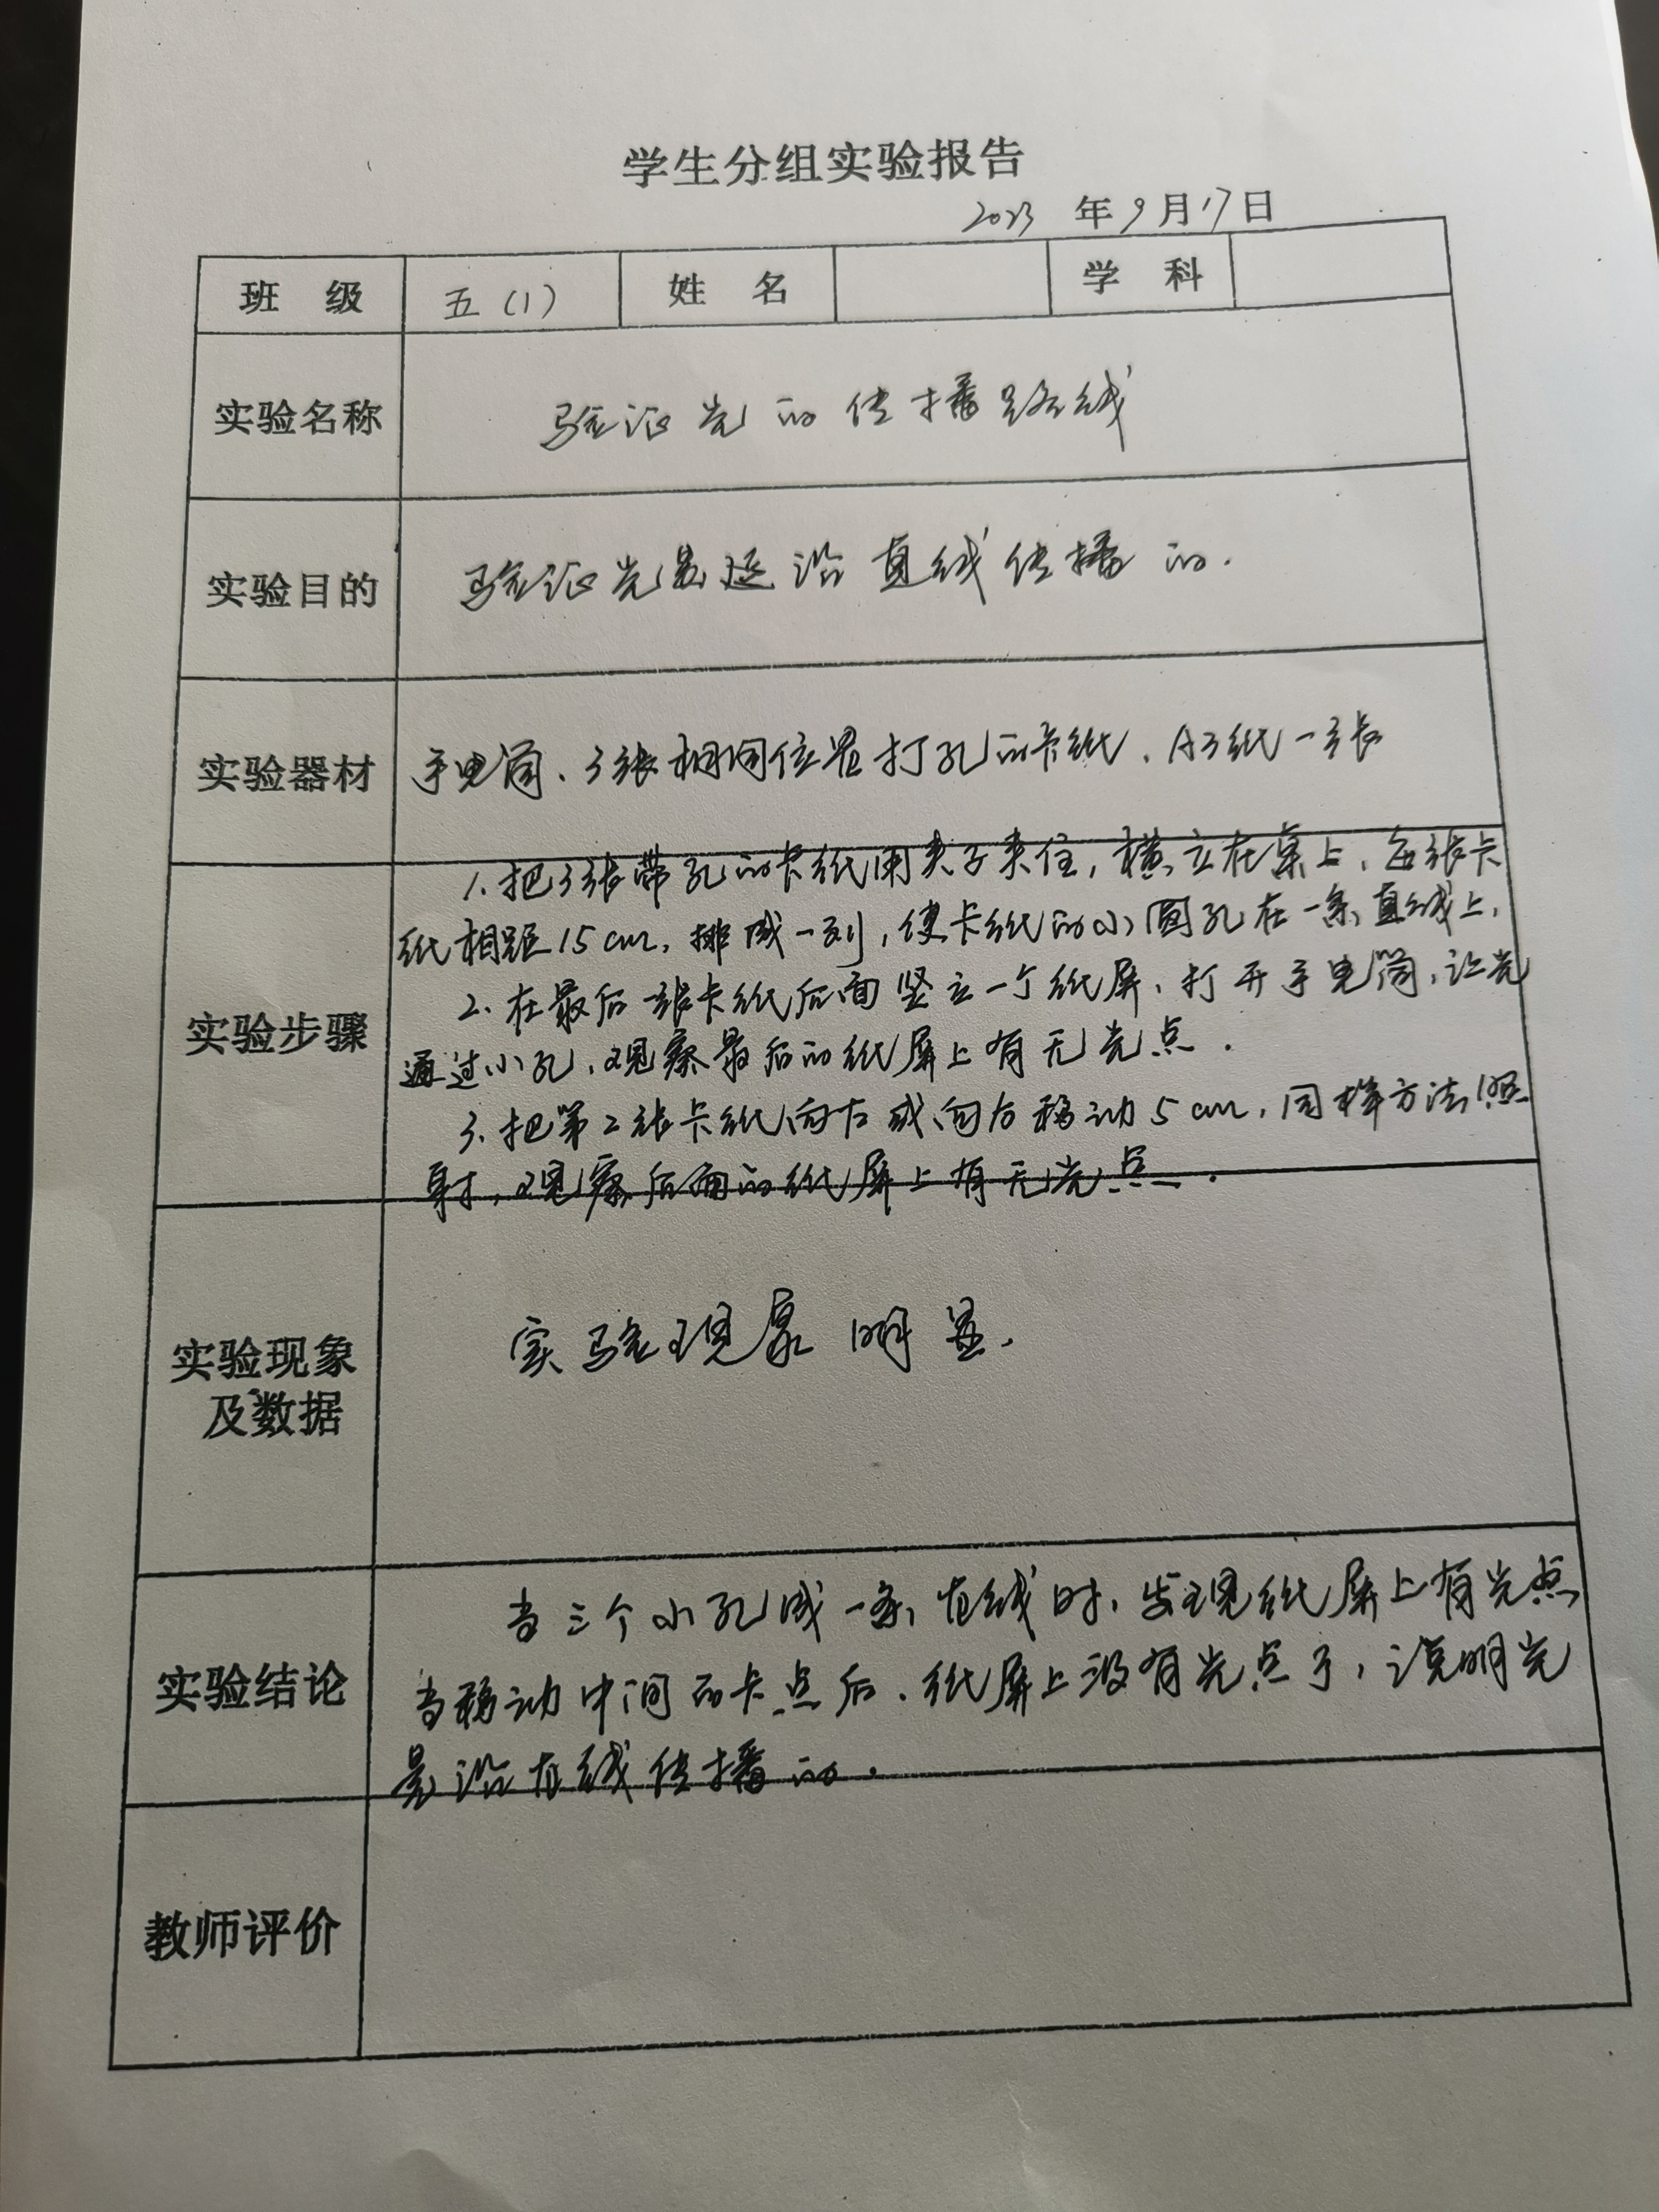 学生分组实验报告
2023 年 9 月 17 日
班 级 五(1) 姓 名 学 科
实验名称 验证光的传播路线
实验目的 验证光是沿直线传播的.
实验器材 手电筒、3张相同位置打孔的卡纸、A3纸一张
1.把3张带孔的卡纸用夹子夹住,横立在桌上,每张卡
纸相距15cm,排成一列,使卡纸的小圆孔在一条直线上,
2.在最后一张卡纸后面竖立一个纸屏,打开手电筒,让光
实验步骤
通过小孔,观察最后的纸屏上有无光点.
3.把第2张卡纸向左或向右移动5cm,同样方法照
射,观察后面的纸屏上有无光点.
实验现象
及数据
实验现象明显.
当三个小孔成一条直线时,发现纸屏上有光点
实验结论
当移动中间的卡点后,纸屏上没有光点了,说明光
是沿直线传播的.
教师评价